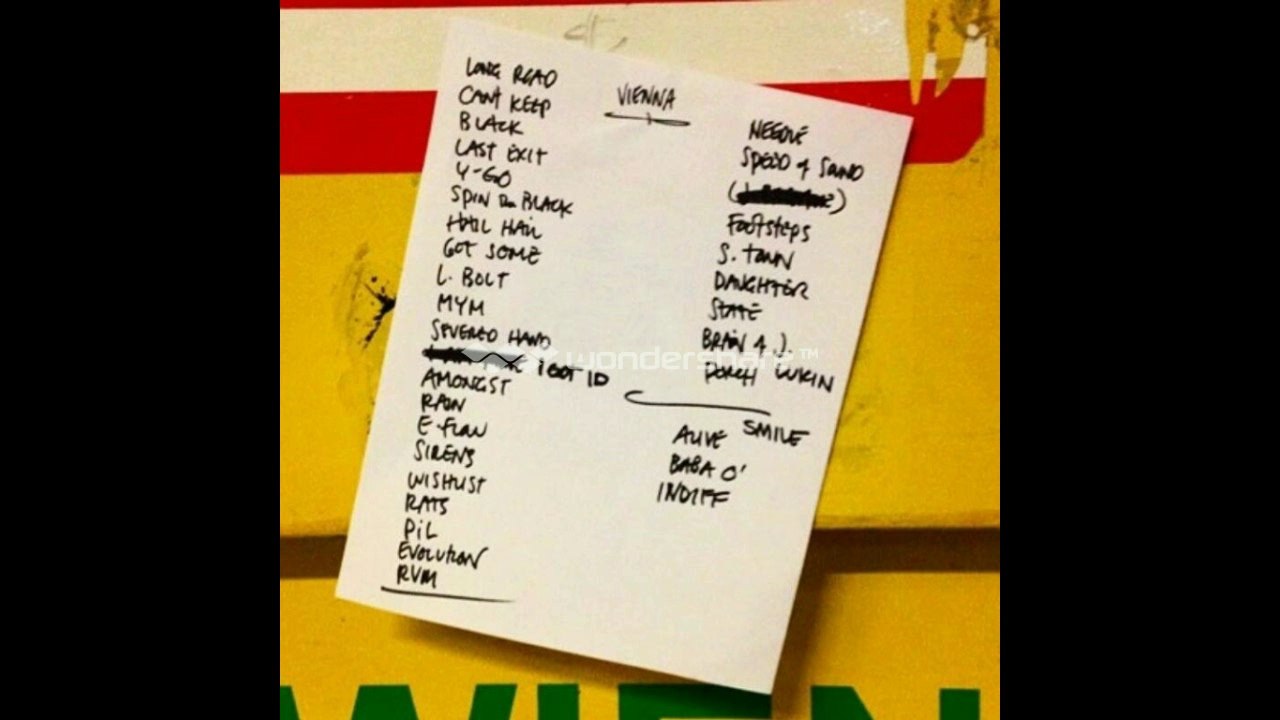 VIENNA
LONG ROAD
CANT KEEP
BLACK
LAST EXIT
Y-GO
SPIN THE BLACK
HAIL HAIL
GOT SOME
L. BOLT
MYM
SEVERED HAND
I GOT ID
AMONGST
RAIN
E-FLOW
SIRENS
WISHLIST
RATS
PiL
EVOLUTION
RVM
NEEDLE
SPEED of SOUND
FOOTSTEPS
S. TOWN
DAUGHTER
STATE
BRAIN of J.
PORCH LUKIN
SMILE
ALIVE
BABA O'
INDIFF
wondershare™
WIEN